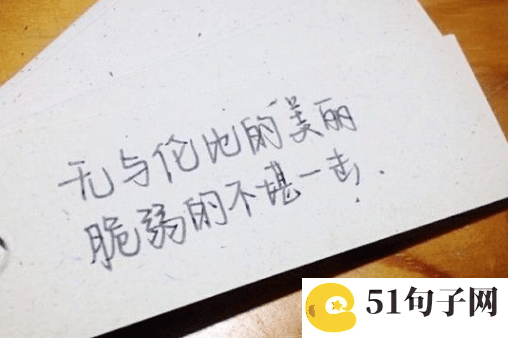 无与伦比的美丽
脆弱的不堪一击.
51句子网